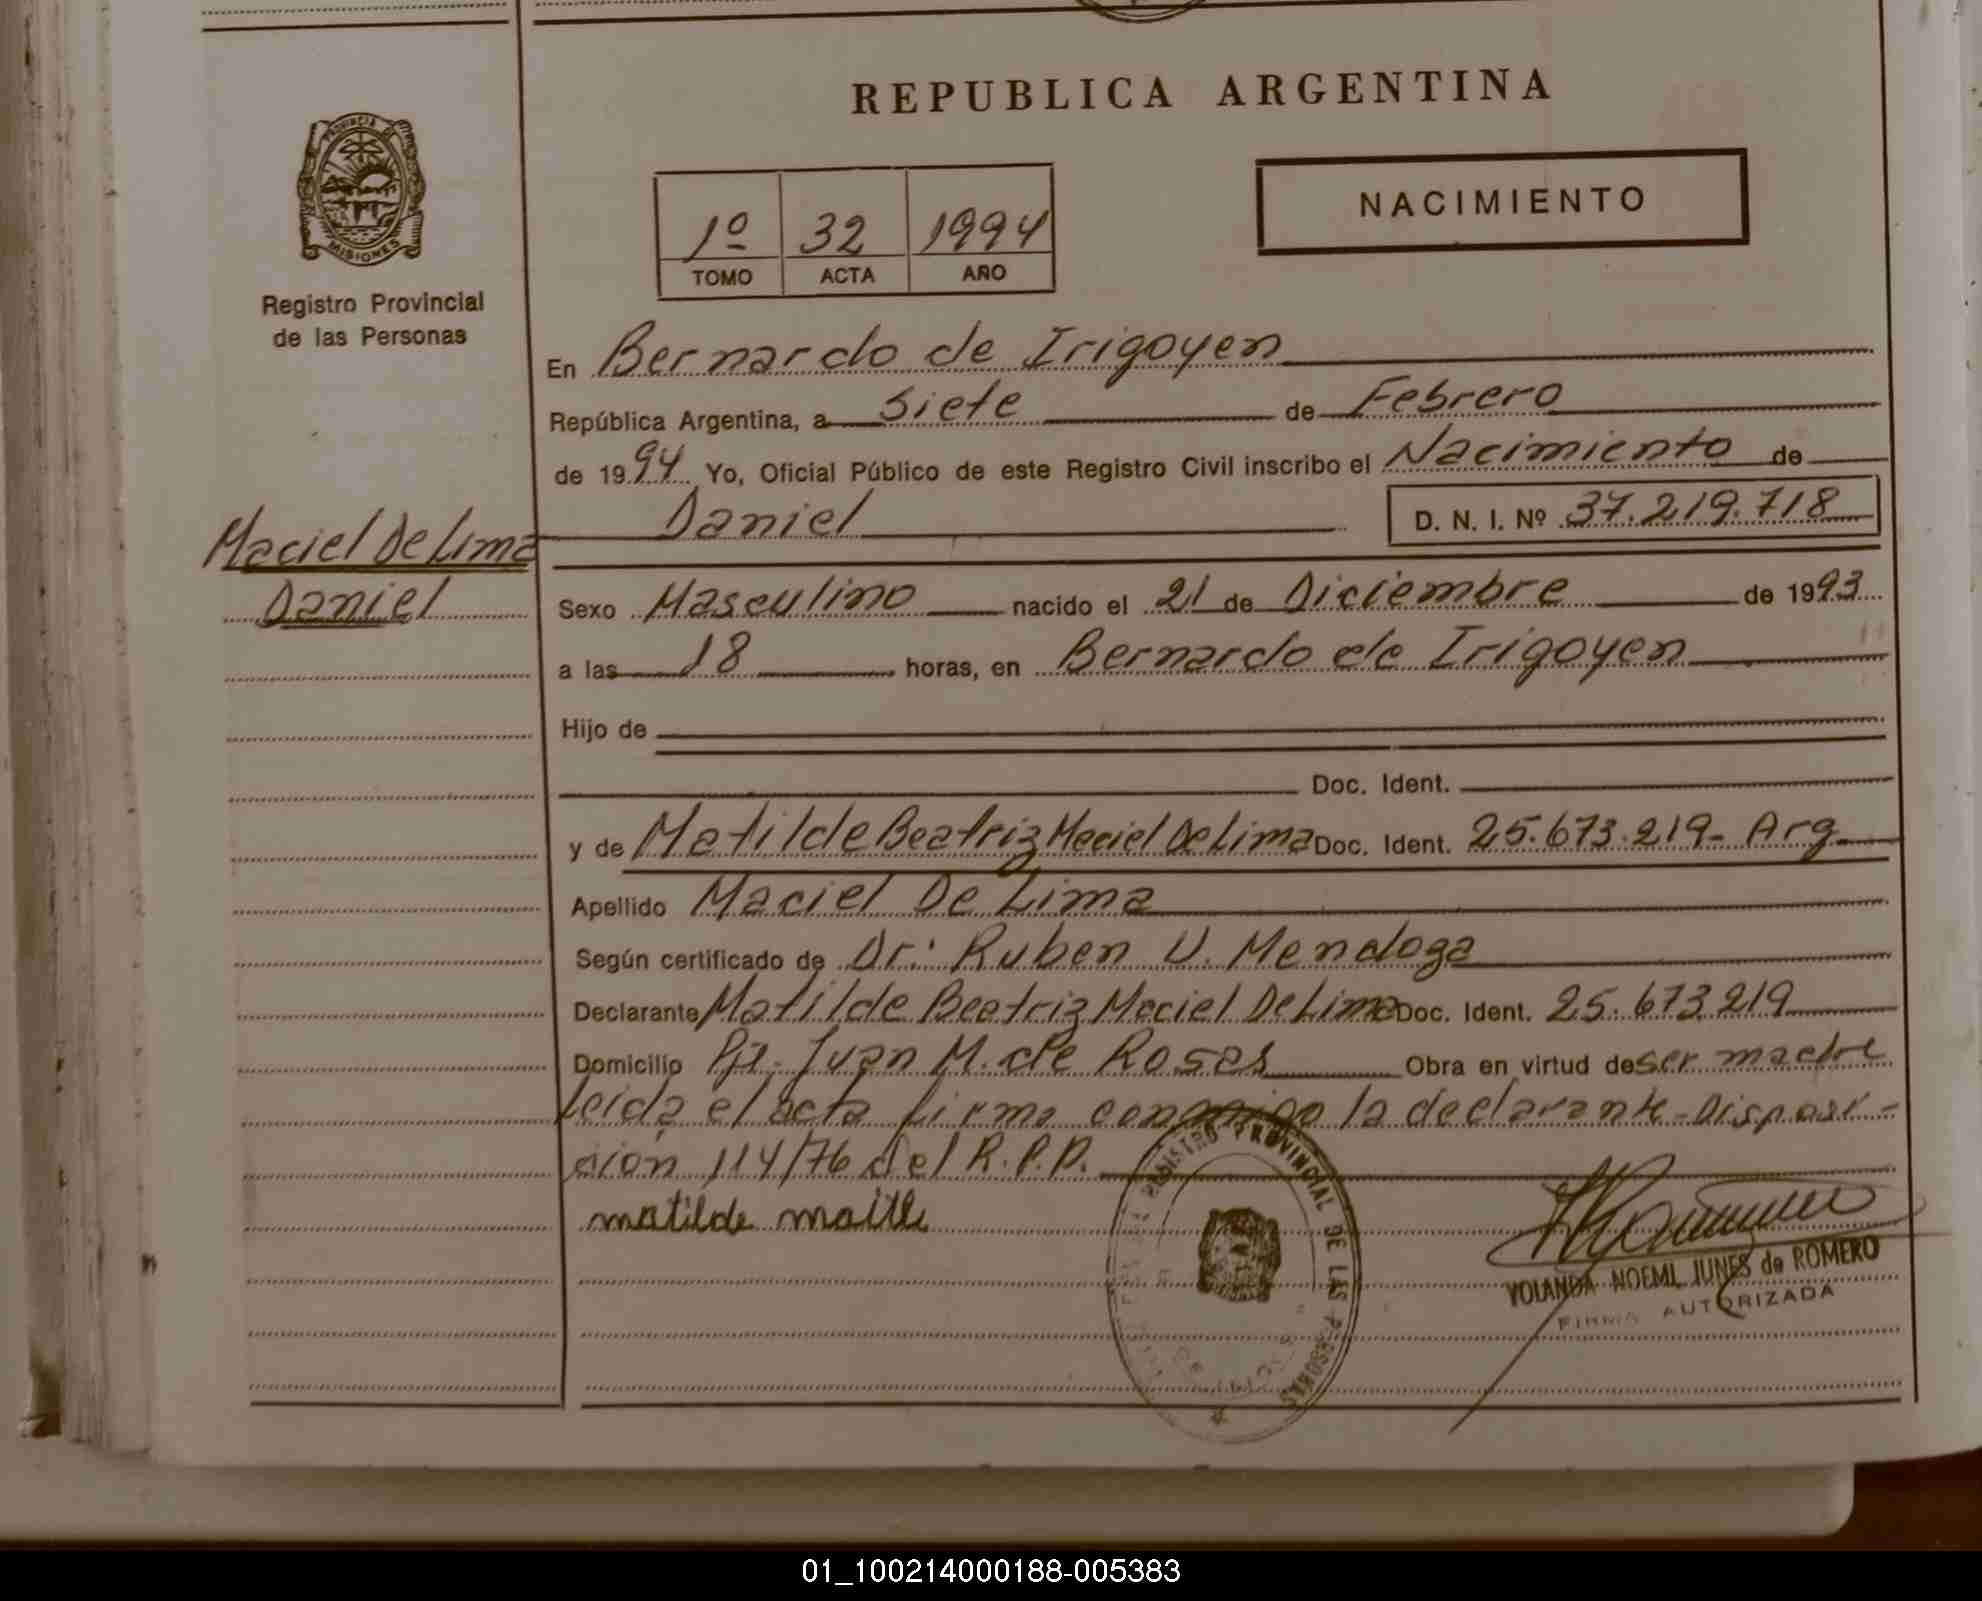 REPUBLICA ARGENTINA
PROVINCIA DE
MISIONES
Registro Provincial
de las Personas
1º 32 1994
TOMO ACTA AÑO
NACIMIENTO
En Bernardo de Irigoyen
República Argentina, a Siete de Febrero
de 1994 Yo, Oficial Público de este Registro Civil inscribo el Nacimiento de
Daniel D. N. I. Nº 37.219.718
Maciel De Lima
Daniel
Sexo Masculino nacido el 21 de Diciembre de 1993
a las 18 horas, en Bernardo de Irigoyen
Hijo de
Doc. Ident.
y de Matilde Beatriz Maciel De Lima Doc. Ident. 25.673.219- Arg
Apellido Maciel De Lima
Según certificado de Dr: Ruben U. Mendoza
Declarante Matilde Beatriz Maciel De Lima Doc. Ident. 25.673.219
Domicilio Pje. Juan M. de Rosas Obra en virtud de ser madre
Leida el acta firma conmigo la declarante-Disposi-
cion 114/76 del R.P.P.
matilde
REGISTRO PROVINCIAL DE LAS PERSONAS
YOLANDA NOEMI JUNES de ROMERO
FIRMA AUTORIZADA
01_100214000188-005383